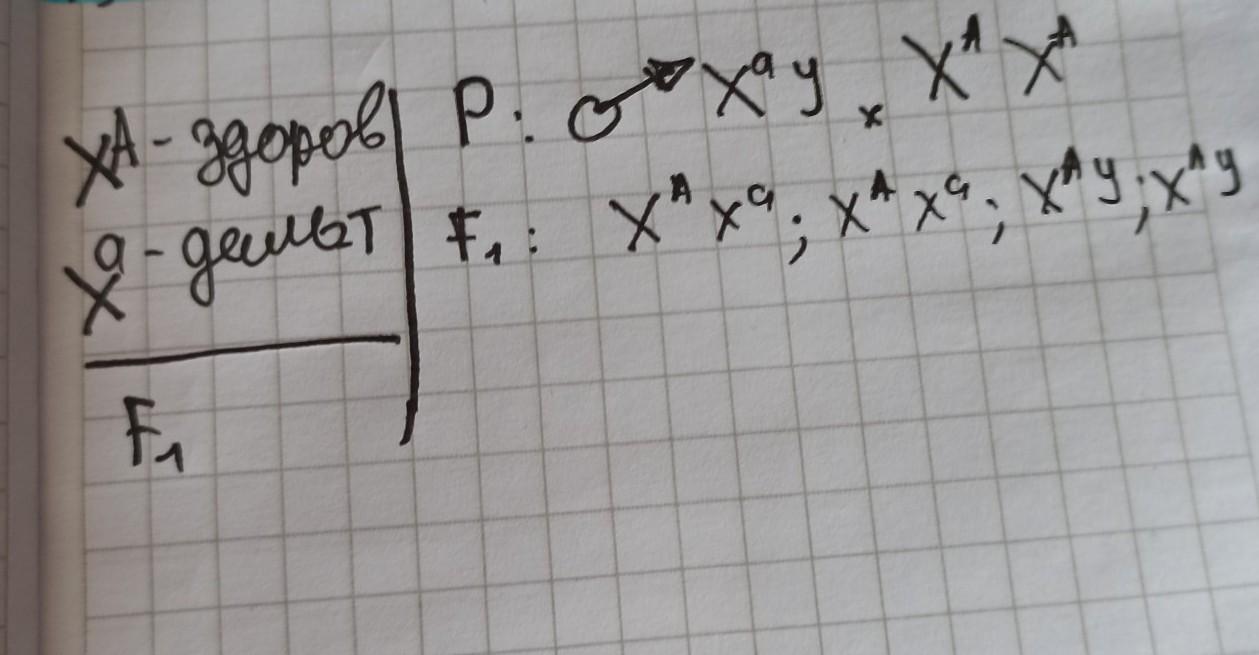 X^A - здоров
X^a - дальт
F₁
P: ♂ X^a y × X^A X^A
F₁: X^A X^a; X^A X^a; X^A y; X^A y